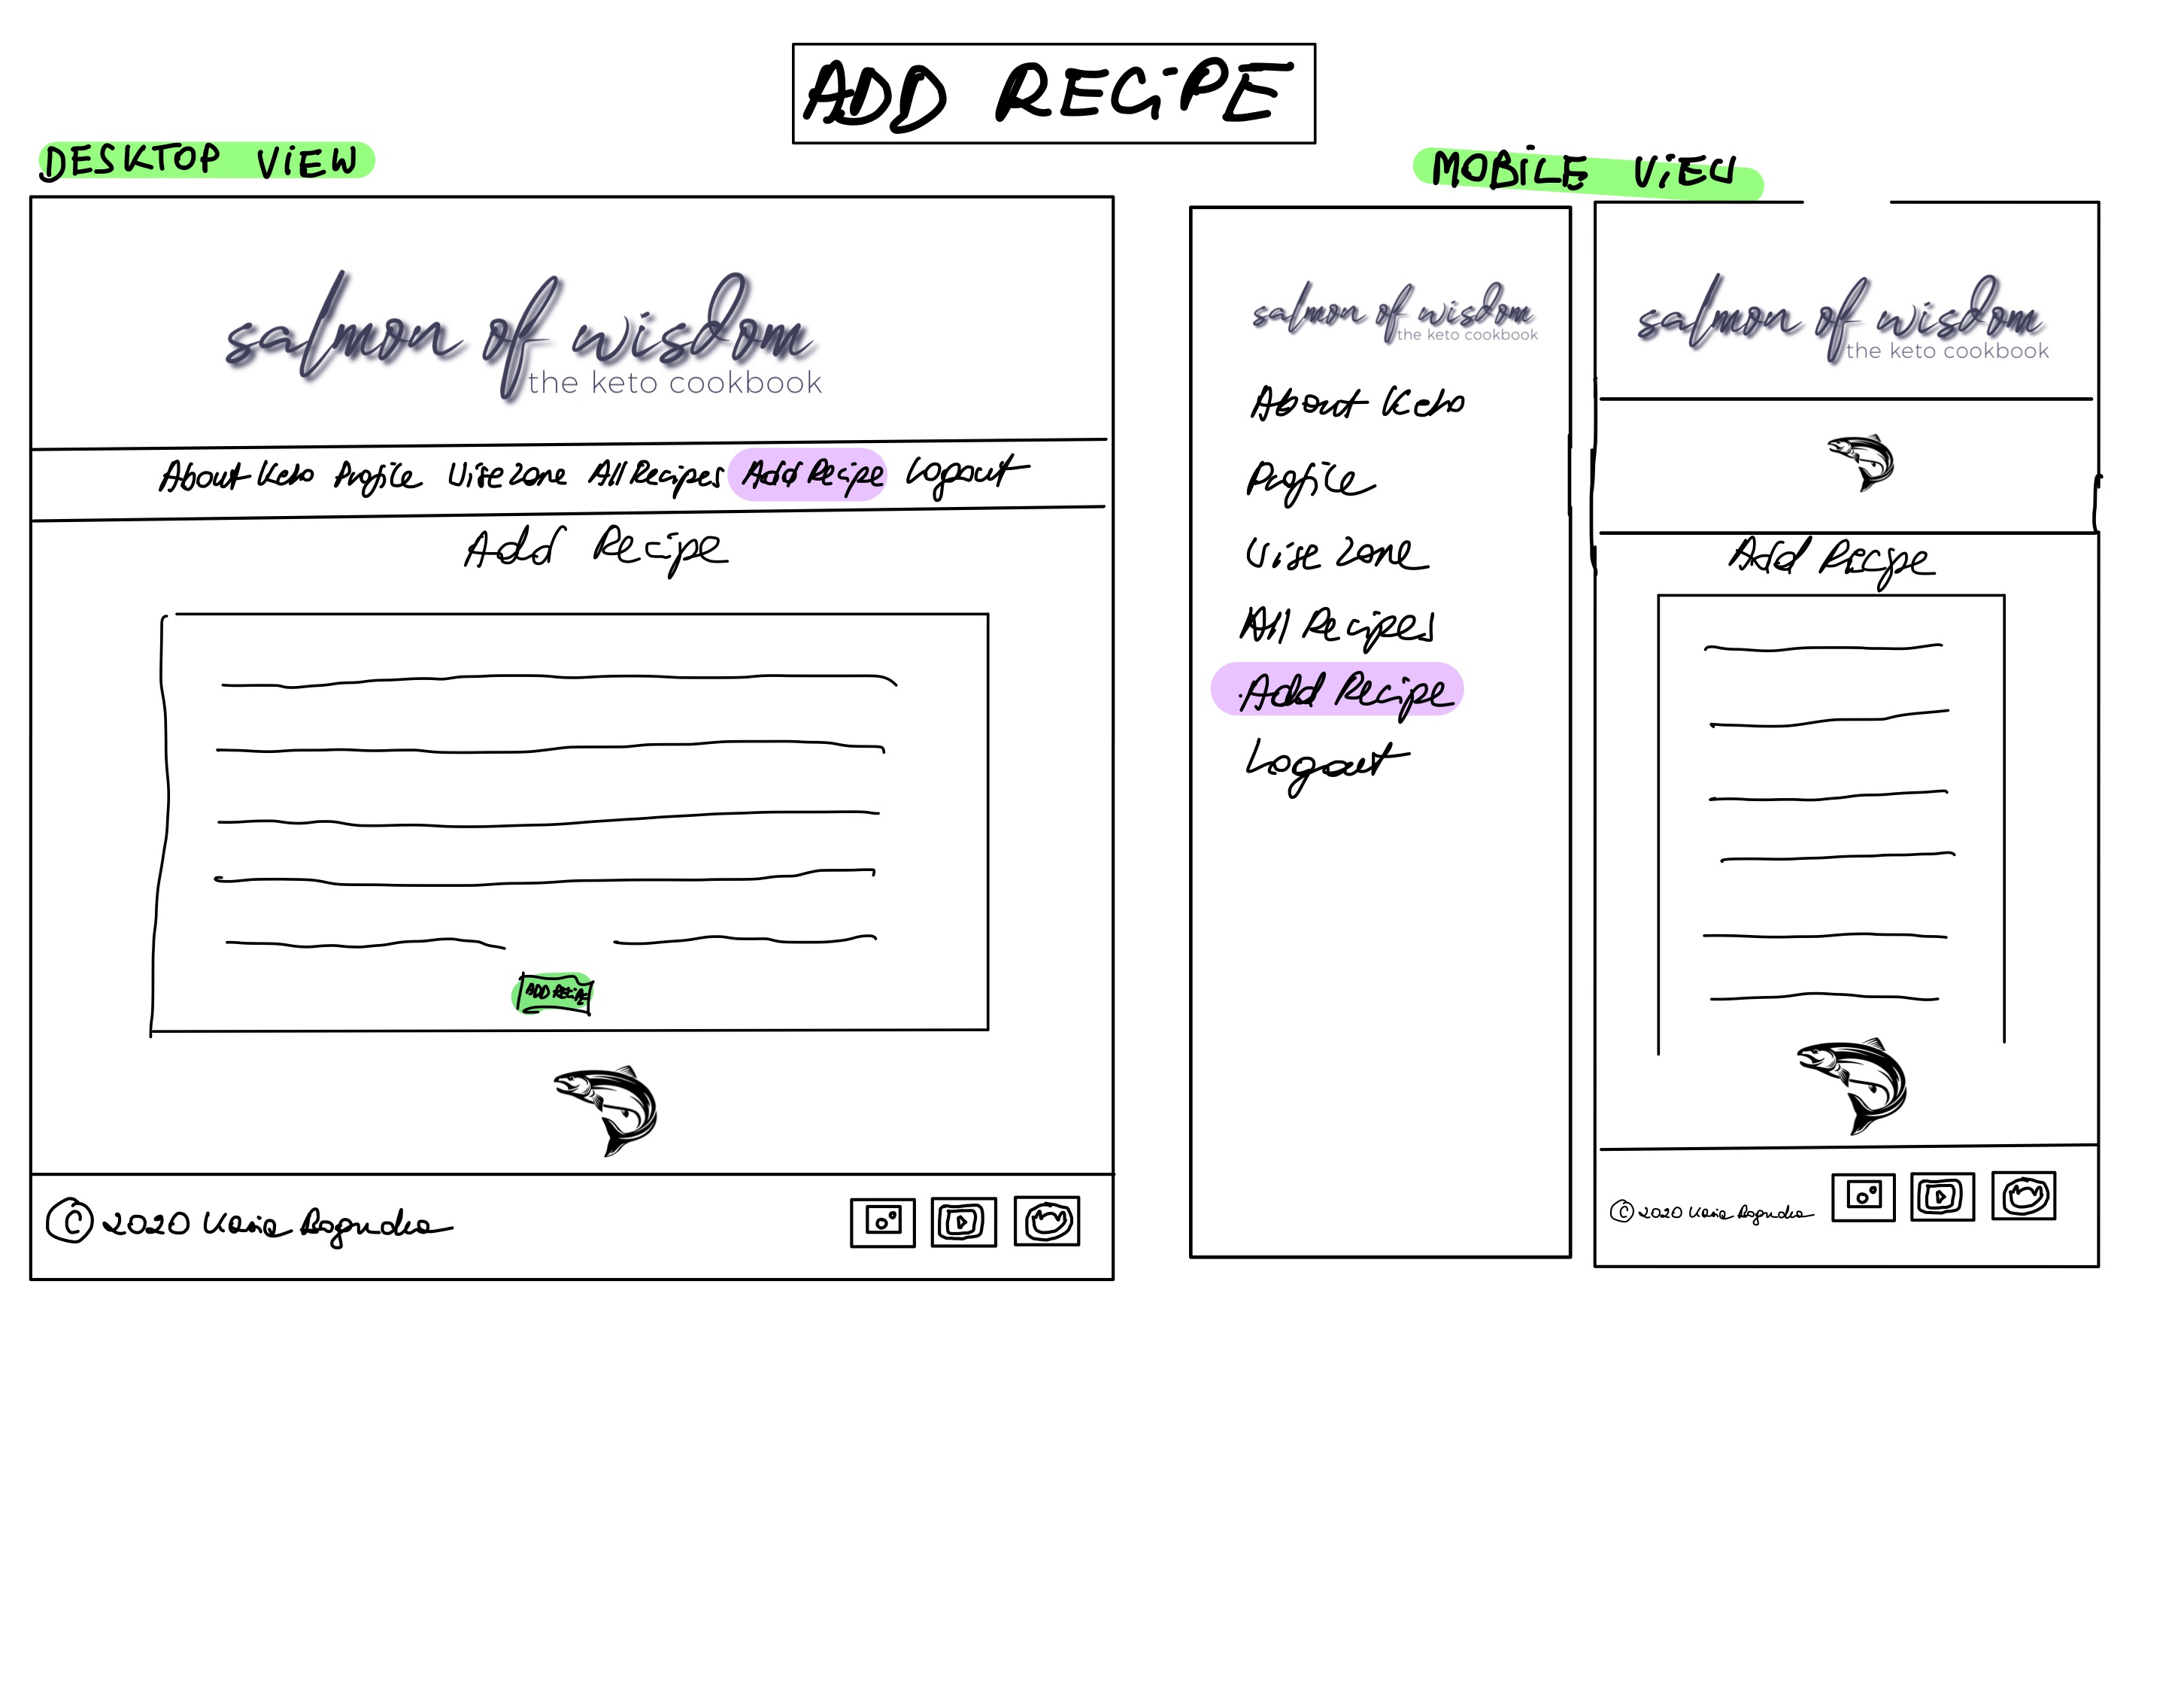 ADD RECIPE
DESKTOP VIEW
salmon of wisdom
the keto cookbook
About Keto Profile Wise Zone All Recipes Add Recipe Logout
Add Recipe
ADD RECIPE
© 2020 Kasia
MOBILE VIEW
salmon of wisdom
the keto cookbook
About Keto
Profile
Wise Zone
All Recipes
Add Recipe
Logout
salmon of wisdom
the keto cookbook
Add Recipe
© 2020 Kasia